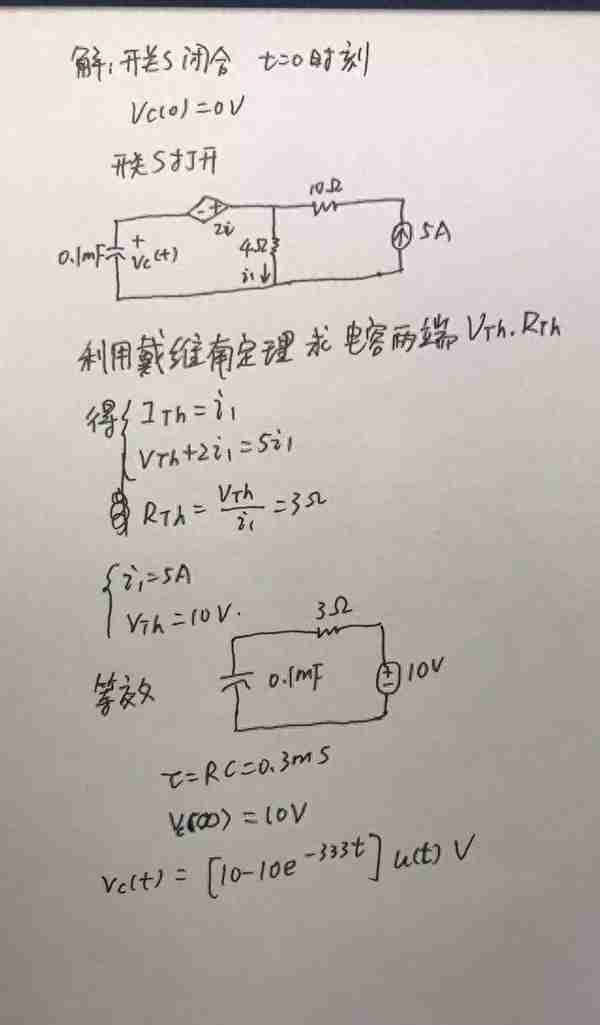 解：开关S闭合 t=0时刻
Vc(0)=0V
开关S打开
10Ω
- + 2i
5A
0.1mF
+
Vc(t)
4Ω
i₁↓
利用戴维南定理 求 电容两端 VTh. RTh
得{ ITh=i₁
VTh+2i₁=5i₁
RTh=VTh/i₁=3Ω
{ i₁=5A
VTh=10V.
3Ω
等效
0.1mF
+
-
10V
τ=RC=0.3ms
Vc(∞)=10V
Vc(t)=[10-10e^-333t]u(t) V